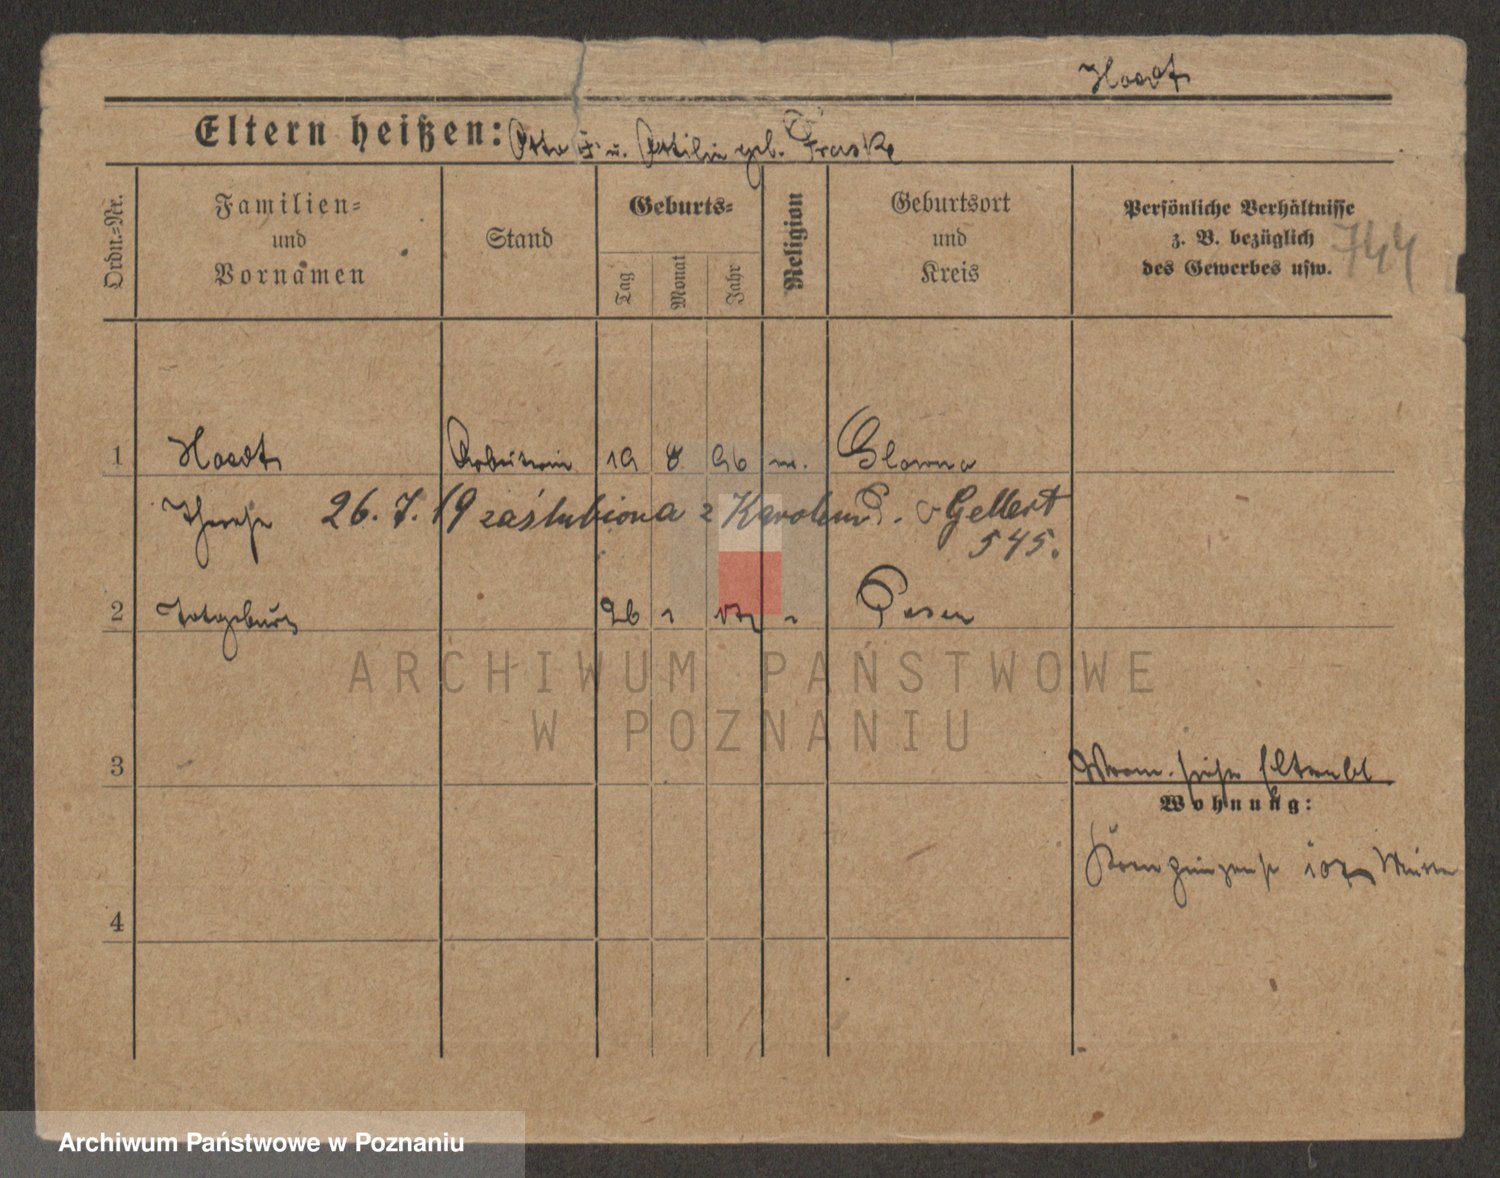 Haedt
Eltern heißen: Otto u. Ottilie geb. Fraske
Ordn.-Nr.
Familien-
und
Vornamen
Stand
Geburts-
Tag
Monat
Jahr
Religion
Geburtsort
und
Kreis
Persönliche Verhältnisse
z. B. bezüglich
des Gewerbes usw.
744
1 Haedt Arbeiterin 19 8 96 Glowno
Therese 26. 7. 19 zaślubiona z Karolem Gellert
545.
2 Totgeburt 26 1 17 Posen
ARCHIWUM PAŃSTWOWE
W POZNANIU
3
siehe
Wohnung:
107
4
Archiwum Państwowe w Poznaniu